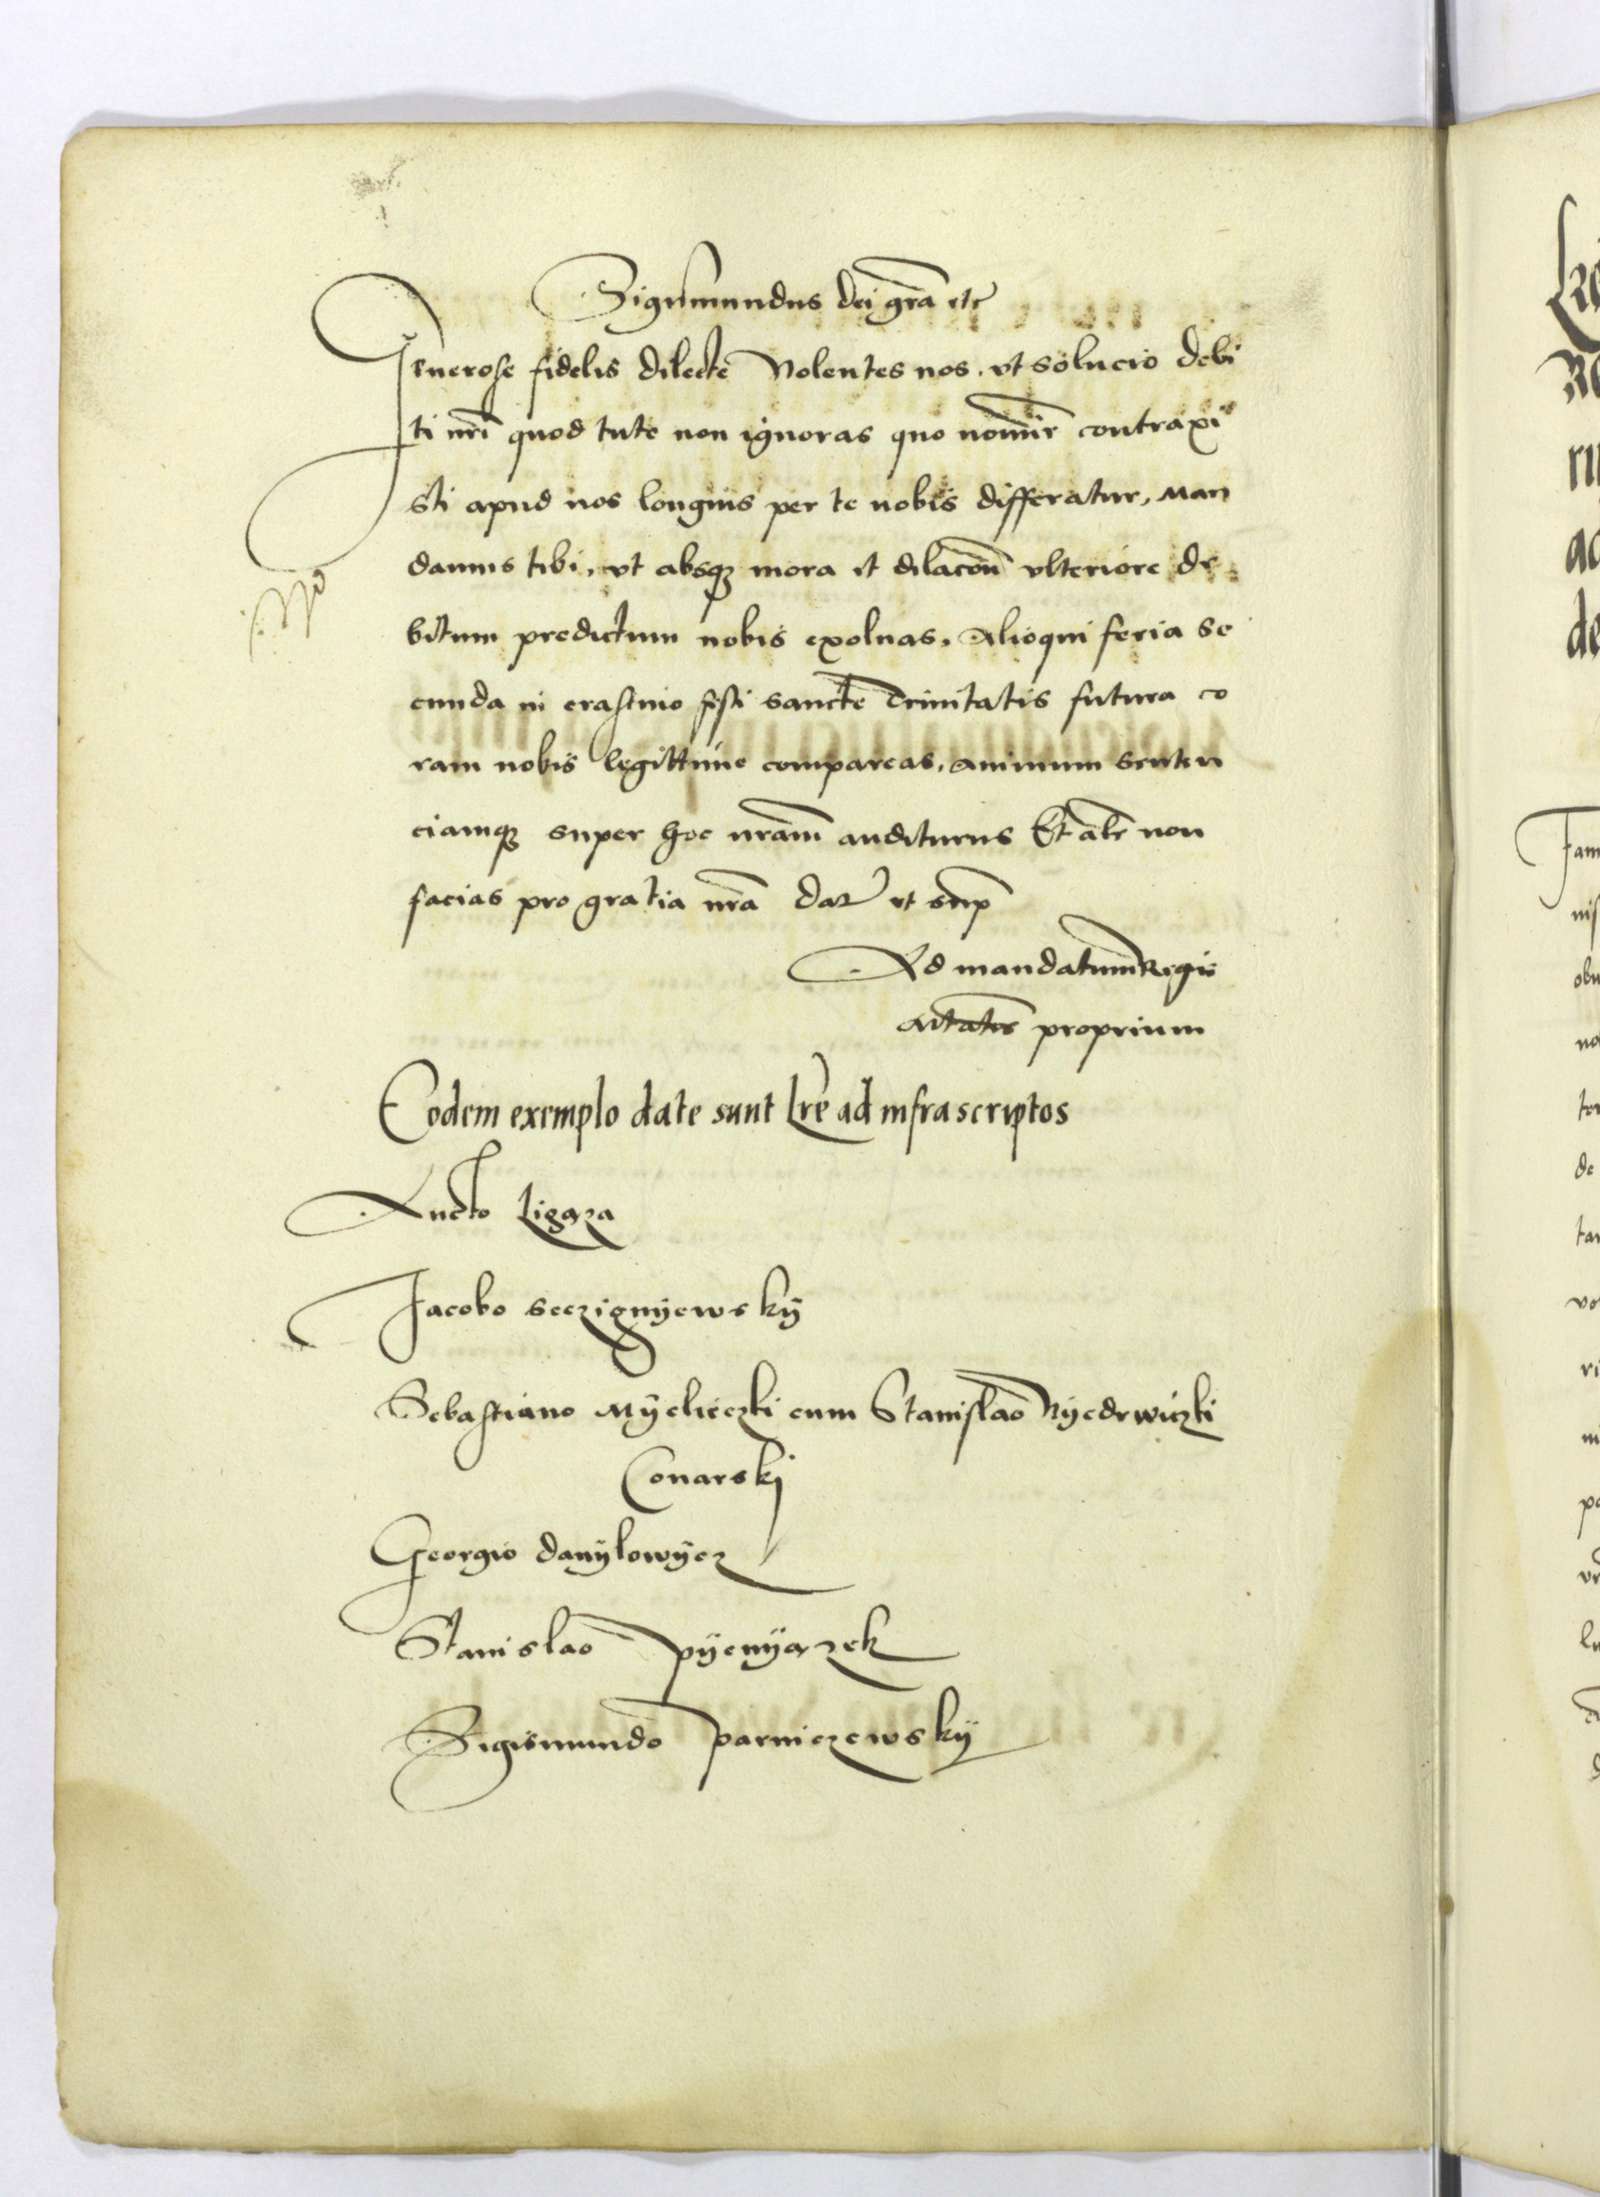 Sigismundus dei gra etc
Generose fidelis dilecte Nolentes nos, ut solucio debi
ti nri quod tute non ignoras quo nomine contraxi
sti apud nos longius per te nobis differatur, Man
damus tibi, ut absq mora et dilacone ulteriore de
bitum predictum nobis exoluas, Alioqui feria se
cunda in crastino festi sancte Trinitatis futura co
ram nobis legittime compareas, animum senten
ciamq super hoc nram auditurus Et alr non
facias pro gratia nra Dat ut supra
Ad mandatum Regis
Mtatis proprium
Eodem exemplo date sunt lre ad infrascriptos
Aucto Ligaza
Jacobo seczignyewsky
Sebastiano Myelieczki cum Stanislao Nyedrwiczki
Conarski
Georgio danylowycz
Stanislao pyenyazek
Sigismundo parniczewsky